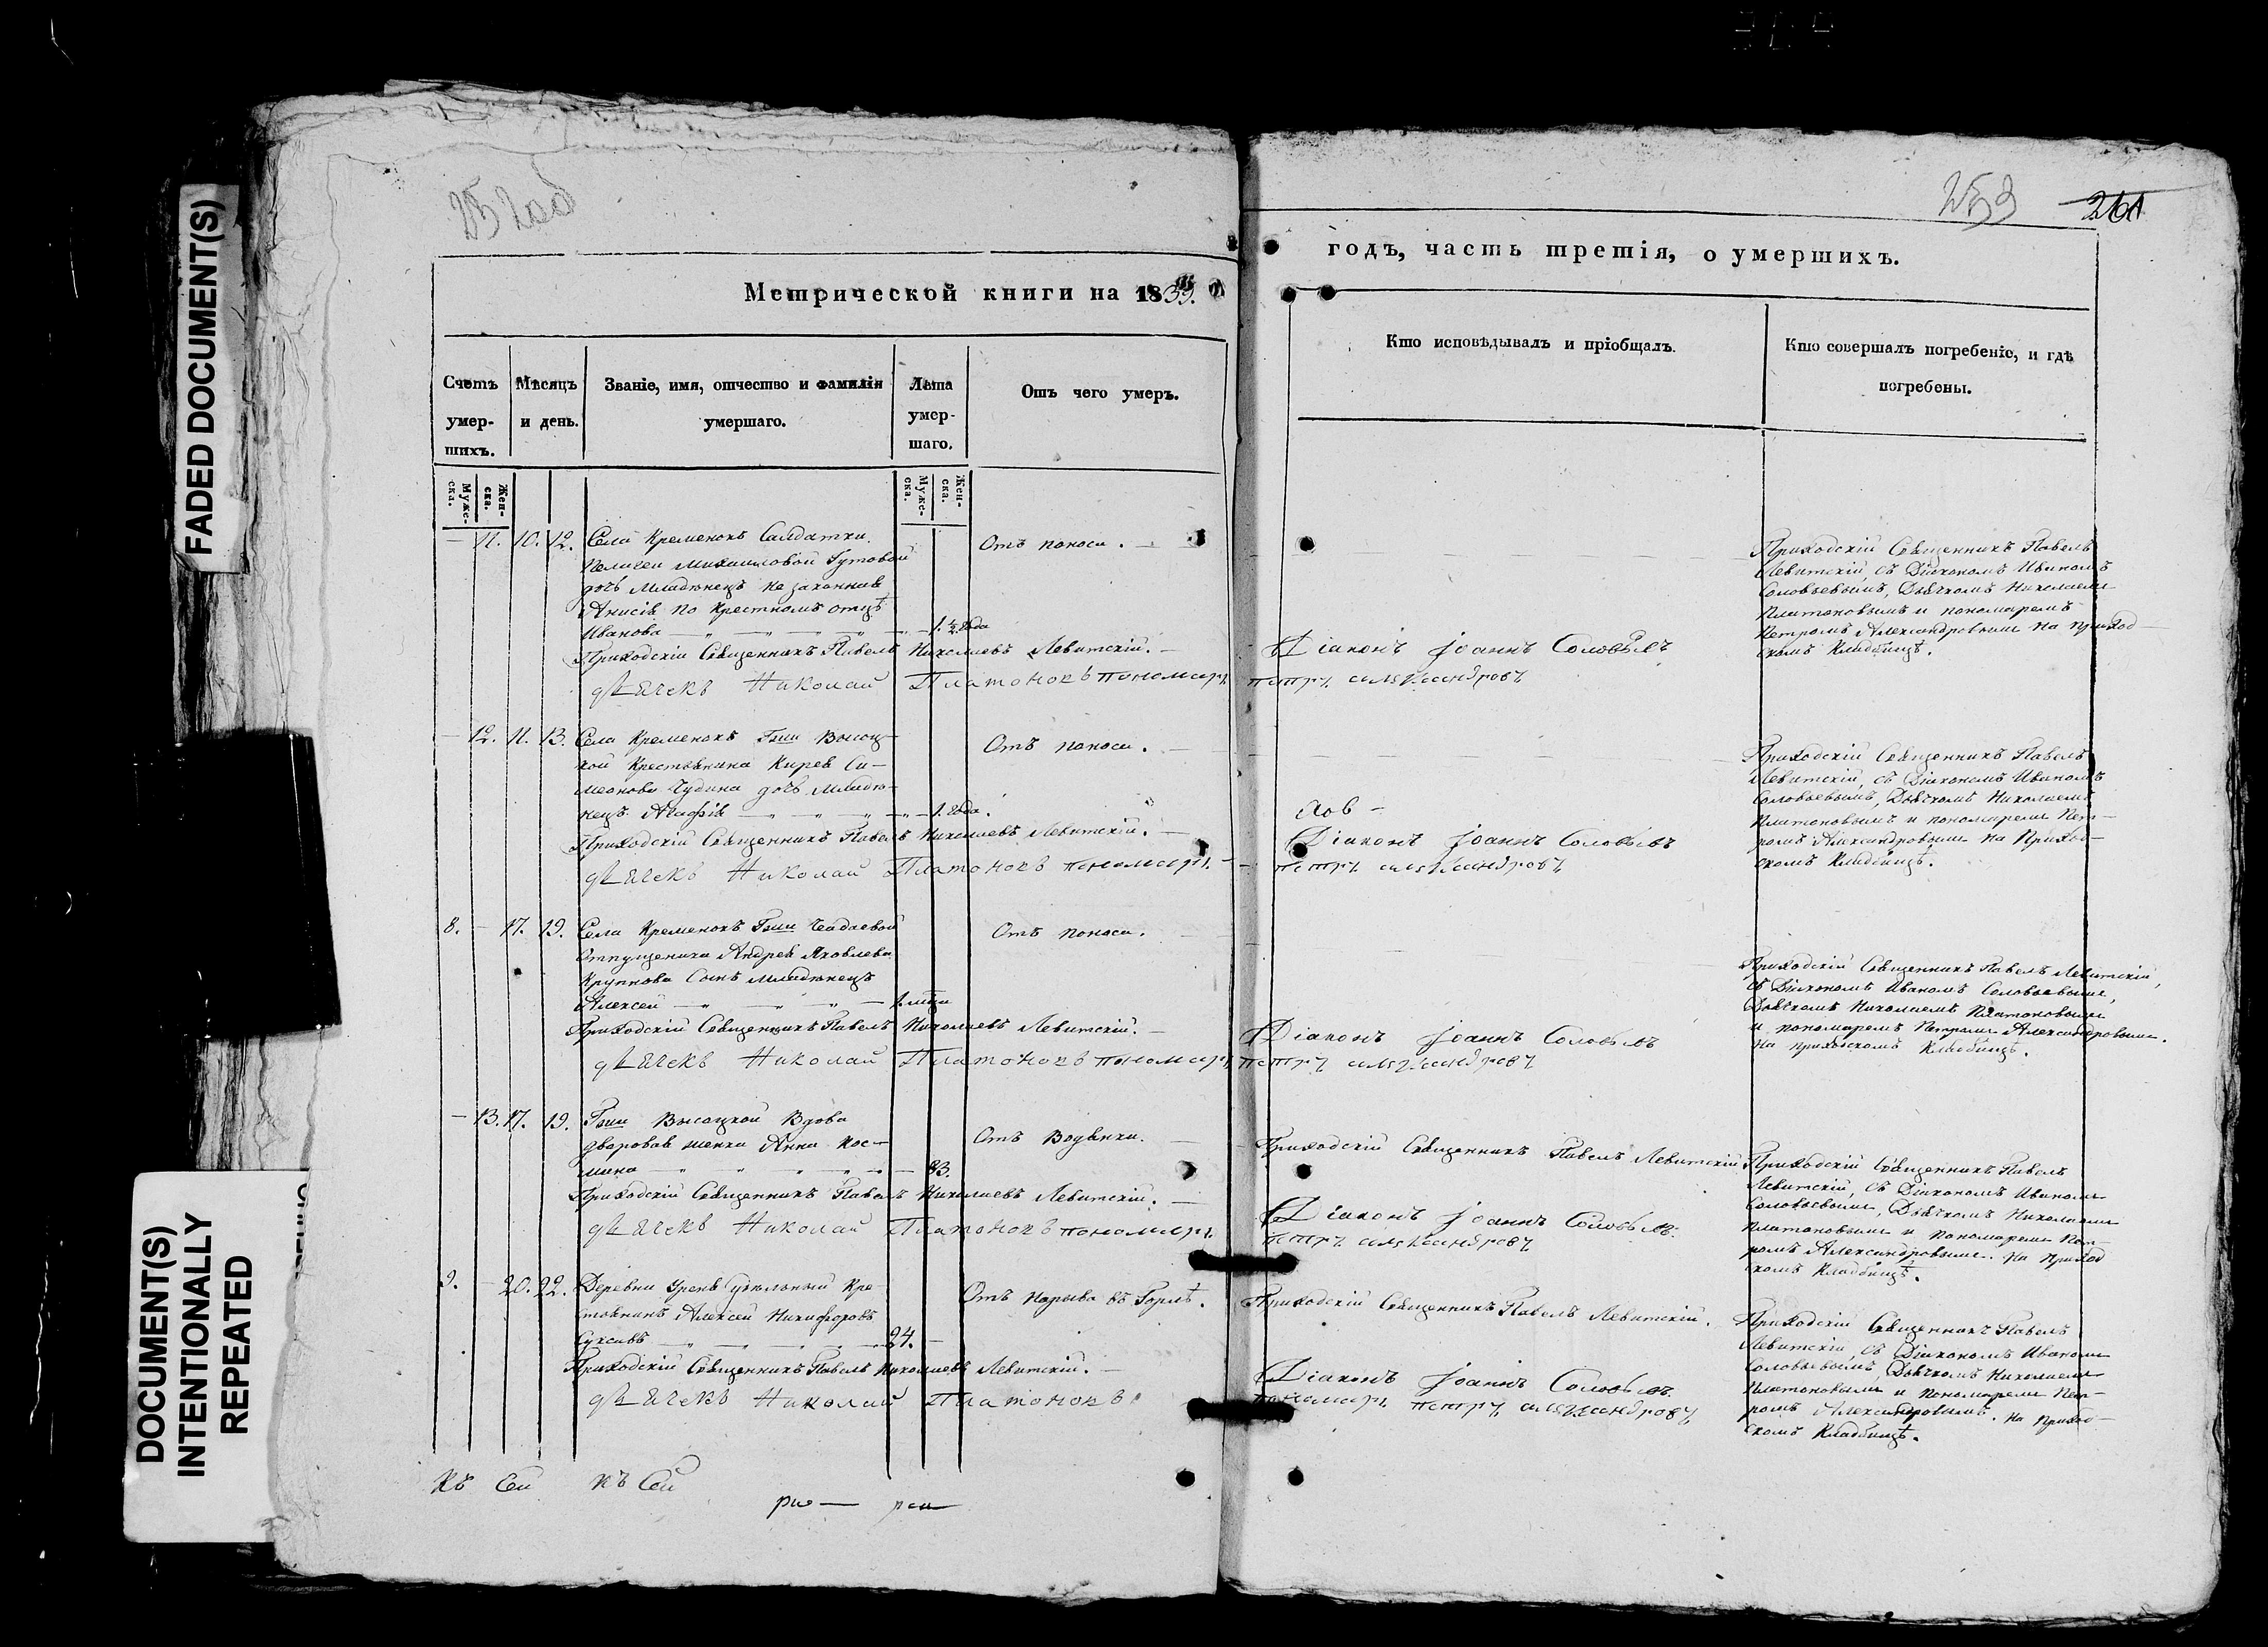 252 об
253 261
FADED DOCUMENT(S)
DOCUMENT(S)
INTENTIONALLY
REPEATED
Метрической книги на 1835.
годъ, часть третія, о умершихъ.
Счетъ умер-шихъ.
Мѣсяцъ и день.
Званіе, имя, отчество и фамилія умершаго.
Лѣта умер-шаго.
Отъ чего умеръ.
Кто исповѣдывалъ и пріобщалъ.
Кто совершалъ погребеніе, и гдѣ погребены.
Муже-ска.
Жен-ска.
Муже-ска.
Жен-ска.
— 11. 10. 12. Села Кременокъ Салдатки
Пелагеи Михаиловой Гутовой
дочь младенецъ незаконная
Анисія по крестномъ отцѣ
Иванова — 1 ½ года
Отъ поноса.
Приходскій Священникъ Павелъ Николаевъ Левитскій.
Діаконъ Іоаннъ Соловьевъ
дьячекъ Николай Платоновъ пономарь петръ александровъ
Приходскій Священникъ Павелъ
Левитскій, съ Діакономъ Иваномъ
Соловьевымъ, Дьячкомъ Николаемъ
Платоновымъ и пономаремъ
Петромъ Александровымъ на приход-
скомъ кладбищѣ.
— 12. 11. 13. Села Кременокъ Гжи Высоц-
кой крестьянина Кирея Си-
меонова Чудина дочь младе-
нецъ Агафія — 1. года.
Отъ поноса.
Приходскій Священникъ Павелъ Николаевъ Левитскій.
Діаконъ Іоаннъ Соловьевъ
дьячекъ Николай Платоновъ пономарь петръ александровъ
Приходскій Священникъ Павелъ
Левитскій, съ Діакономъ Иваномъ
Соловьевымъ, Дьячкомъ Николаемъ
Платоновымъ и пономаремъ Пет-
ромъ Александровымъ на Приход-
скомъ Кладбищѣ.
8. — 17. 19. Села Кременокъ Гжи Чадаевой
Отпущеника Андрея Яковлева
Крупнова Сынъ младенецъ
Алексей
Отъ поноса.
Приходскій Священникъ Павелъ Николаевъ Левитскій.
Діаконъ Іоаннъ Соловьевъ
дьячекъ Николай Платоновъ пономарь петръ александровъ
Приходскій Священникъ Павелъ Левитскій,
съ Діакономъ Иваномъ Соловьевымъ,
Дьячкомъ Николаемъ Платоновымъ
и пономаремъ Петромъ Александровымъ.
на приходскомъ Кладбищѣ.
— 13. 17. 19. Гжи Высоцкой Вдова
дворовая женка Анна Кос-
мина — 83.
Отъ Водянки.
Приходскій Священникъ Павелъ Левитскій
Приходскій Священникъ Павелъ Николаевъ Левитскій.
Діаконъ Іоаннъ Соловьевъ.
дьячекъ Николай Платоновъ пономарь петръ александровъ
Приходскій Священникъ Павелъ
Левитскій, съ Діакономъ Иваномъ
Соловьевымъ, Дьячкомъ Николаемъ
Платоновымъ и пономаремъ Пет-
ромъ Александровымъ. на Приход
скомъ Кладбищѣ.
9. — 20. 22. Деревни Урени удѣльный кре-
стьянинъ Алексей Никифоровъ
24.
Отъ нарыва въ Горлѣ.
Приходскій Священникъ Павелъ Левитскій.
Приходскій Священникъ Павелъ Николаевъ Левитскій.
Діаконъ Іоаннъ Соловьевъ
дьячекъ Николай Платоновъ пономарь петръ александровъ
Приходскій Священникъ Павелъ
Левитскій, съ Діакономъ Иваномъ
Соловьевымъ, Дьячкомъ Николаемъ
Платоновымъ и пономаремъ Пет-
ромъ Александровымъ. на приход-
скомъ Кладбищѣ.
Къ Сей къ Сей